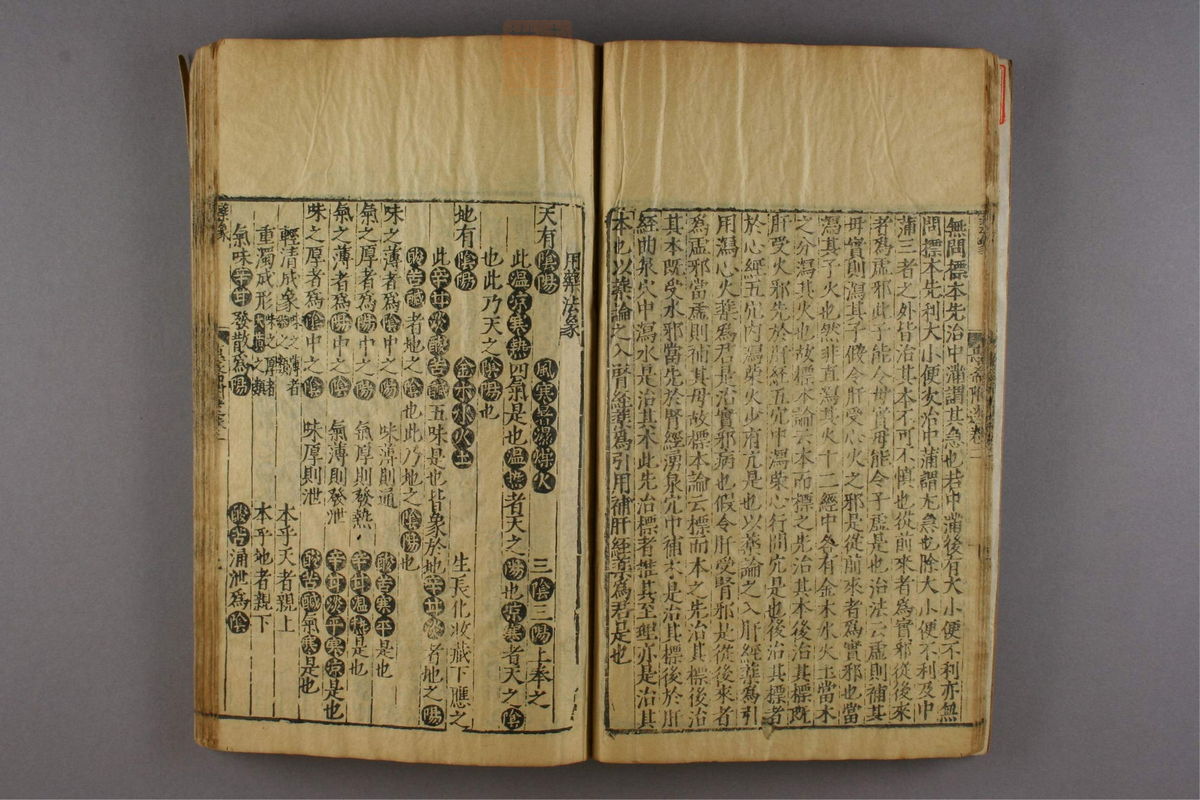 無問標本先治中滿謂其急也若中滿後有大小便不利亦無
問標本先利大小便次治中滿謂尤急也除大小便不利及中
滿三者之外皆治其本不可不慎也從前來者為實邪從後來
者為虛邪此子能令母實母能令子虛是也治法云虛則補其
母實則瀉其子假令肝受心火之邪是從前來者為實邪也當
瀉其子火也然非直瀉其火十二經中各有金木水火土當木
之分瀉其火也故標本論云本而標之先治其本後治其標既
肝受火邪先於肝經五穴中瀉滎心行間穴是也後治其標者
於心經五穴內瀉滎火少府穴是也以藥論之入肝經藥為引
用瀉心火藥為君是治實邪病也假令肝受腎邪是從後來者
為虛邪當虛則補其母故標本論云標而本之先治其標後治
其本既受水邪當先於腎經湧泉穴中補木是治其標後於肝
經曲泉穴中瀉水是治其本此先治標者推其至理亦是治其
本也以藥論之入腎經藥為引用補肝經藥為君是也
用藥法象
天有陰陽 風寒暑濕燥火 三陰三陽上奉之
此溫涼寒熱四氣是也溫熱者天之陽也涼寒者天之陰
也此乃天之陰陽也
地有陰陽 金木水火土 生長化收藏下應之
此辛甘淡酸苦鹹五味是也皆象於地辛甘淡者地之陽
酸苦鹹者地之陰也此乃地之陰陽也
味之薄者為陰中之陽 味薄則通 酸苦鹹平是也
氣之厚者為陽中之陽 氣厚則發熱 辛甘溫熱是也
氣之薄者為陽中之陰 氣薄則發泄 辛甘淡平寒涼是也
味之厚者為陰中之陰 味厚則泄 酸苦鹹氣寒是也
輕清成象 味之薄者 茶之類 本乎天者親上
重濁成形 味之厚者 大黃之類 本乎地者親下
氣味辛甘發散為陽 酸苦涌泄為陰